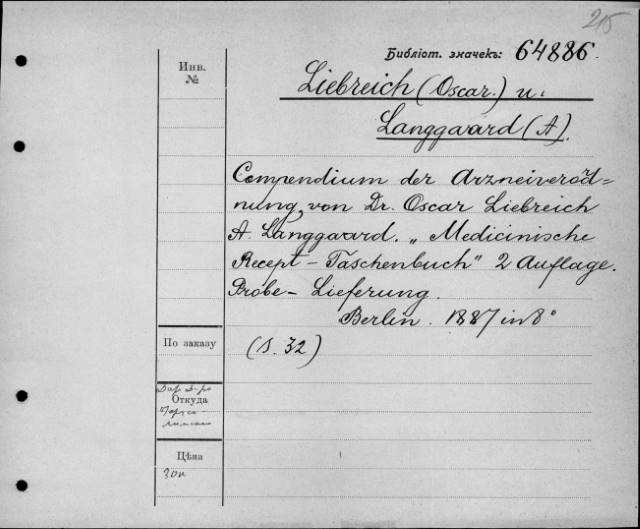 215
Библіот. значекъ: 64886.
Инв.
№
Liebreich (Oscar.) u.
Langgaard (A).
Compendium der Arzneiverord=
nung, von Dr. Oscar Liebreich
A. Langgaard. „Medicinische
Recept - Taschenbuch" 2 Auflage.
Probe - Lieferung.
Berlin. 1887 in 8°
По заказу
(S. 32)
Откуда
Цѣна
30к